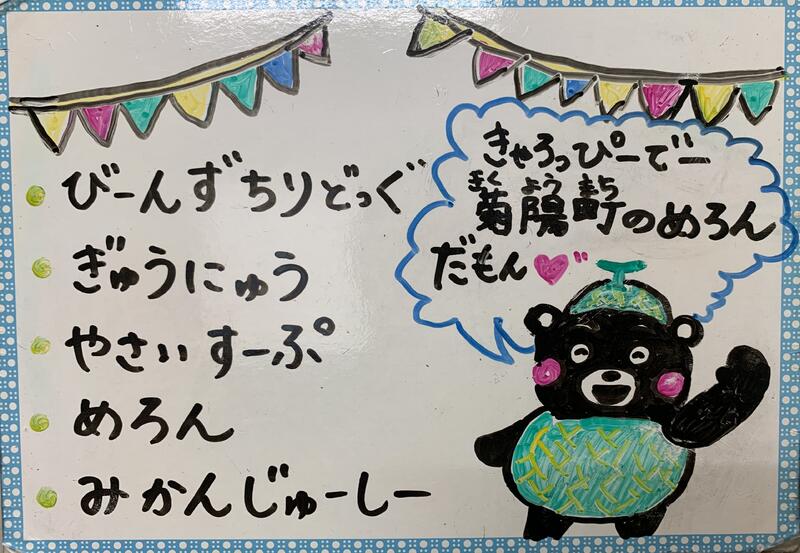 びーんずちりどっぐ
ぎゅうにゅう
やさいすーぷ
めろん
みかんじゅーしー
きゃろっぴーでー
きく よう まち
菊陽町のめろん
だもん